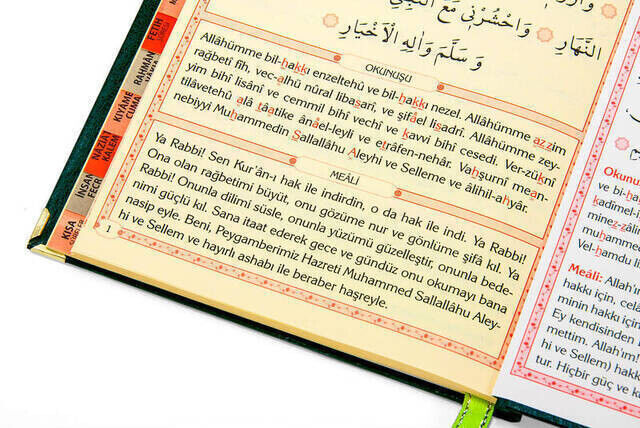 النَّهَارِ وَاحْشُرْنِي مَعَ النَّبِيِّ
وَسَلَّمَ وَاٰلِهِ الْاَخْيَارِ
OKUNUŞU
Allâhümme bil-hakkı enzeltehû ve bil-hakkı nezel. Allâhümme azzim
rağbetî fîh, vec-alhü nûral libasarî, ve şifâel lisadrî. Allâhümme zey-
yim bihî lisânî ve cemmil bihî vechî ve kavvi bihî cesedî. Ver-zükni
tilâvetehû alâ tâatike ânâel-leyli ve etrâfen-nehâr. Vahşurnî mean-
nebiyyi Muhammedin Sallallâhu Aleyhi ve Selleme ve âlihil-ahyâr.
MEÂLİ
Ya Rabbi! Sen Kur'ân-ı hak ile indirdin, o da hak ile indi. Ya Rabbi!
Ona olan rağbetimi büyüt, onu gözüme nur ve gönlüme şifâ kıl. Ya
Rabbi! Onunla dilimi süsle, onunla yüzümü güzelleştir, onunla bede-
nimi güçlü kıl. Sana itaat ederek gece ve gündüz onu okumayı bana
nasip eyle. Beni, Peygamberimiz Hazreti Muhammed Sallallâhu Aley-
hi ve Sellem ve hayırlı ashabı ile beraber haşreyle.
1
FETİH
RAHMÂN
KIYÂME
CUMA
NÂZİÂT
KALEM
İNSAN
FECR
KISA
Okunu
ve bi-ha
kadîmel-i
minez-zâli
Vel-hamdu li
Meâli: Allah'ı
hakkı için, cel
minin hakkı iç
Ey kendisinden
mettim. Allah'ım!
hi ve Sellem) hak
tur. Hiçbir güç ve k